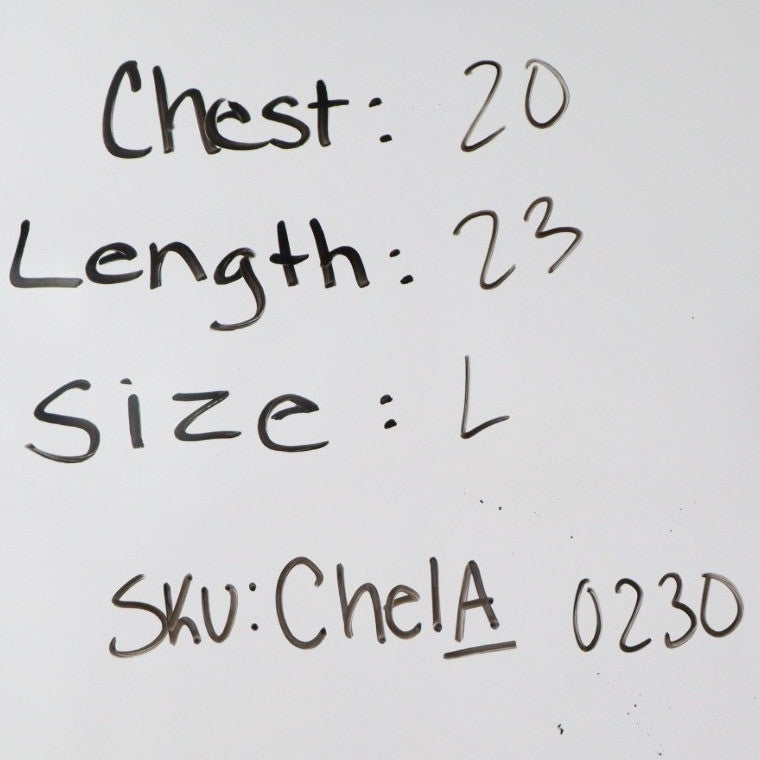 Chest: 20
Length: 23
Size: L
SKU: ChelA 0230